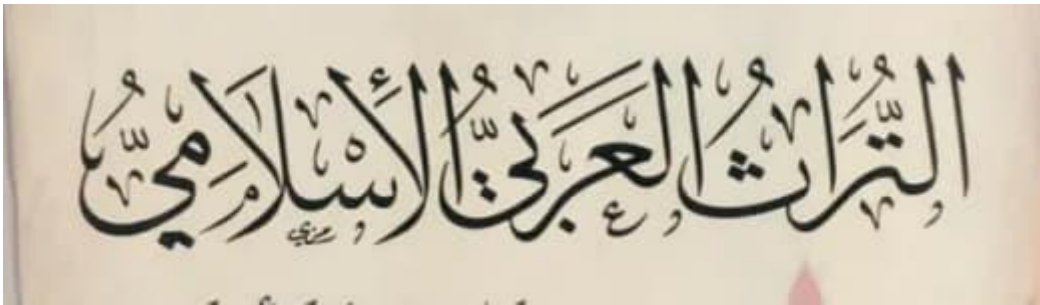 التُّرَاثُ العَرَبِيُّ الأَسْلَامِيُّ